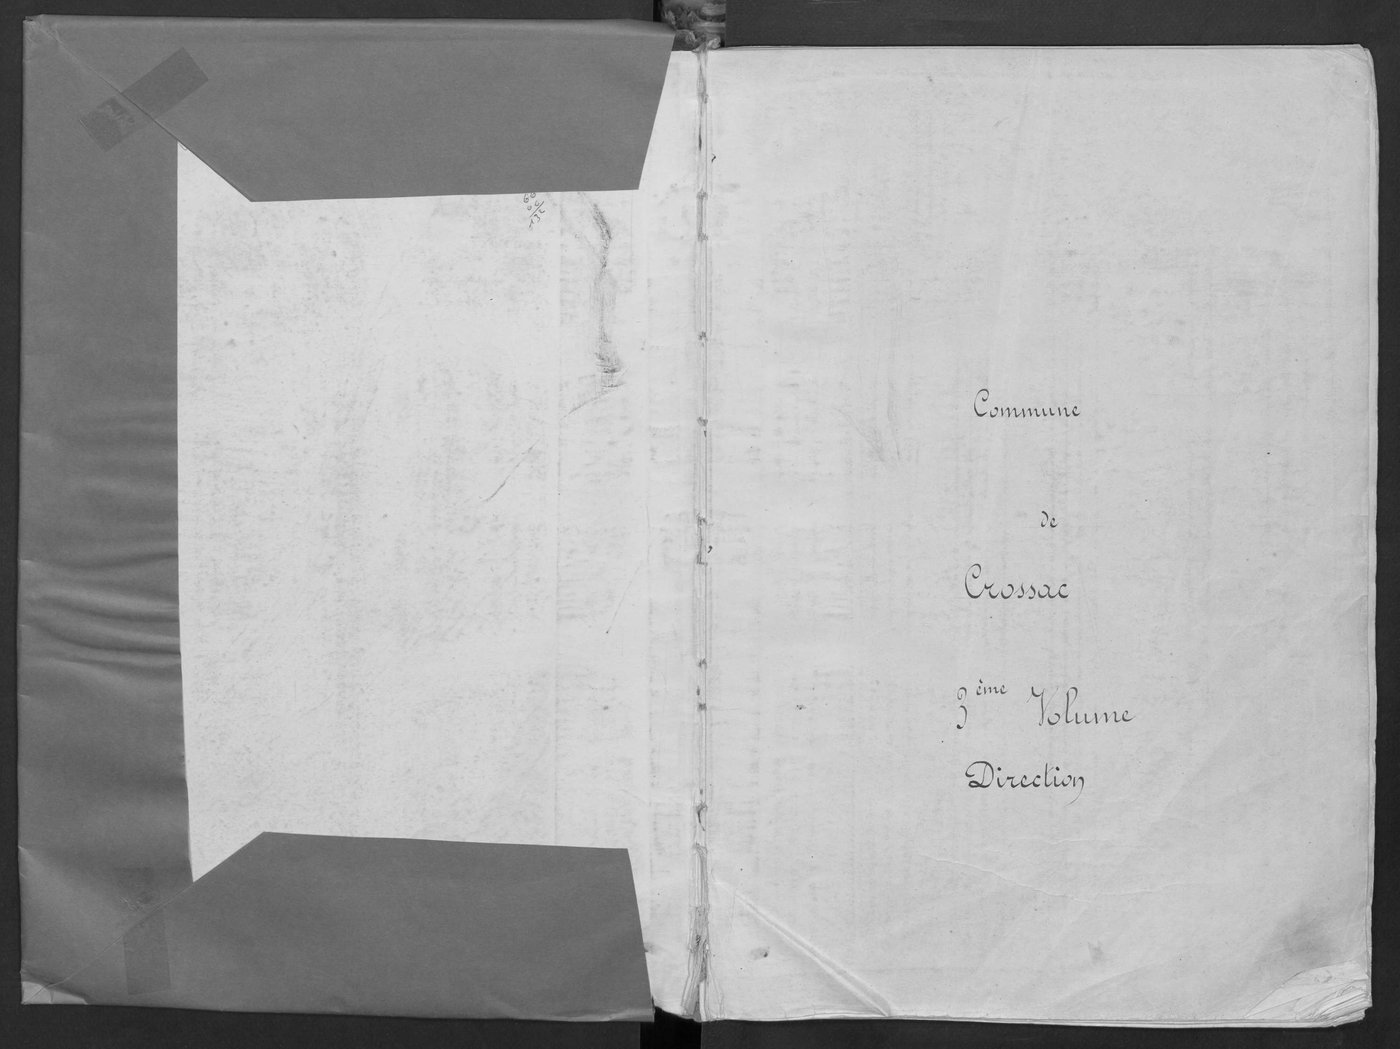 132
Commune
de
Crossac
3ème Volume
Direction